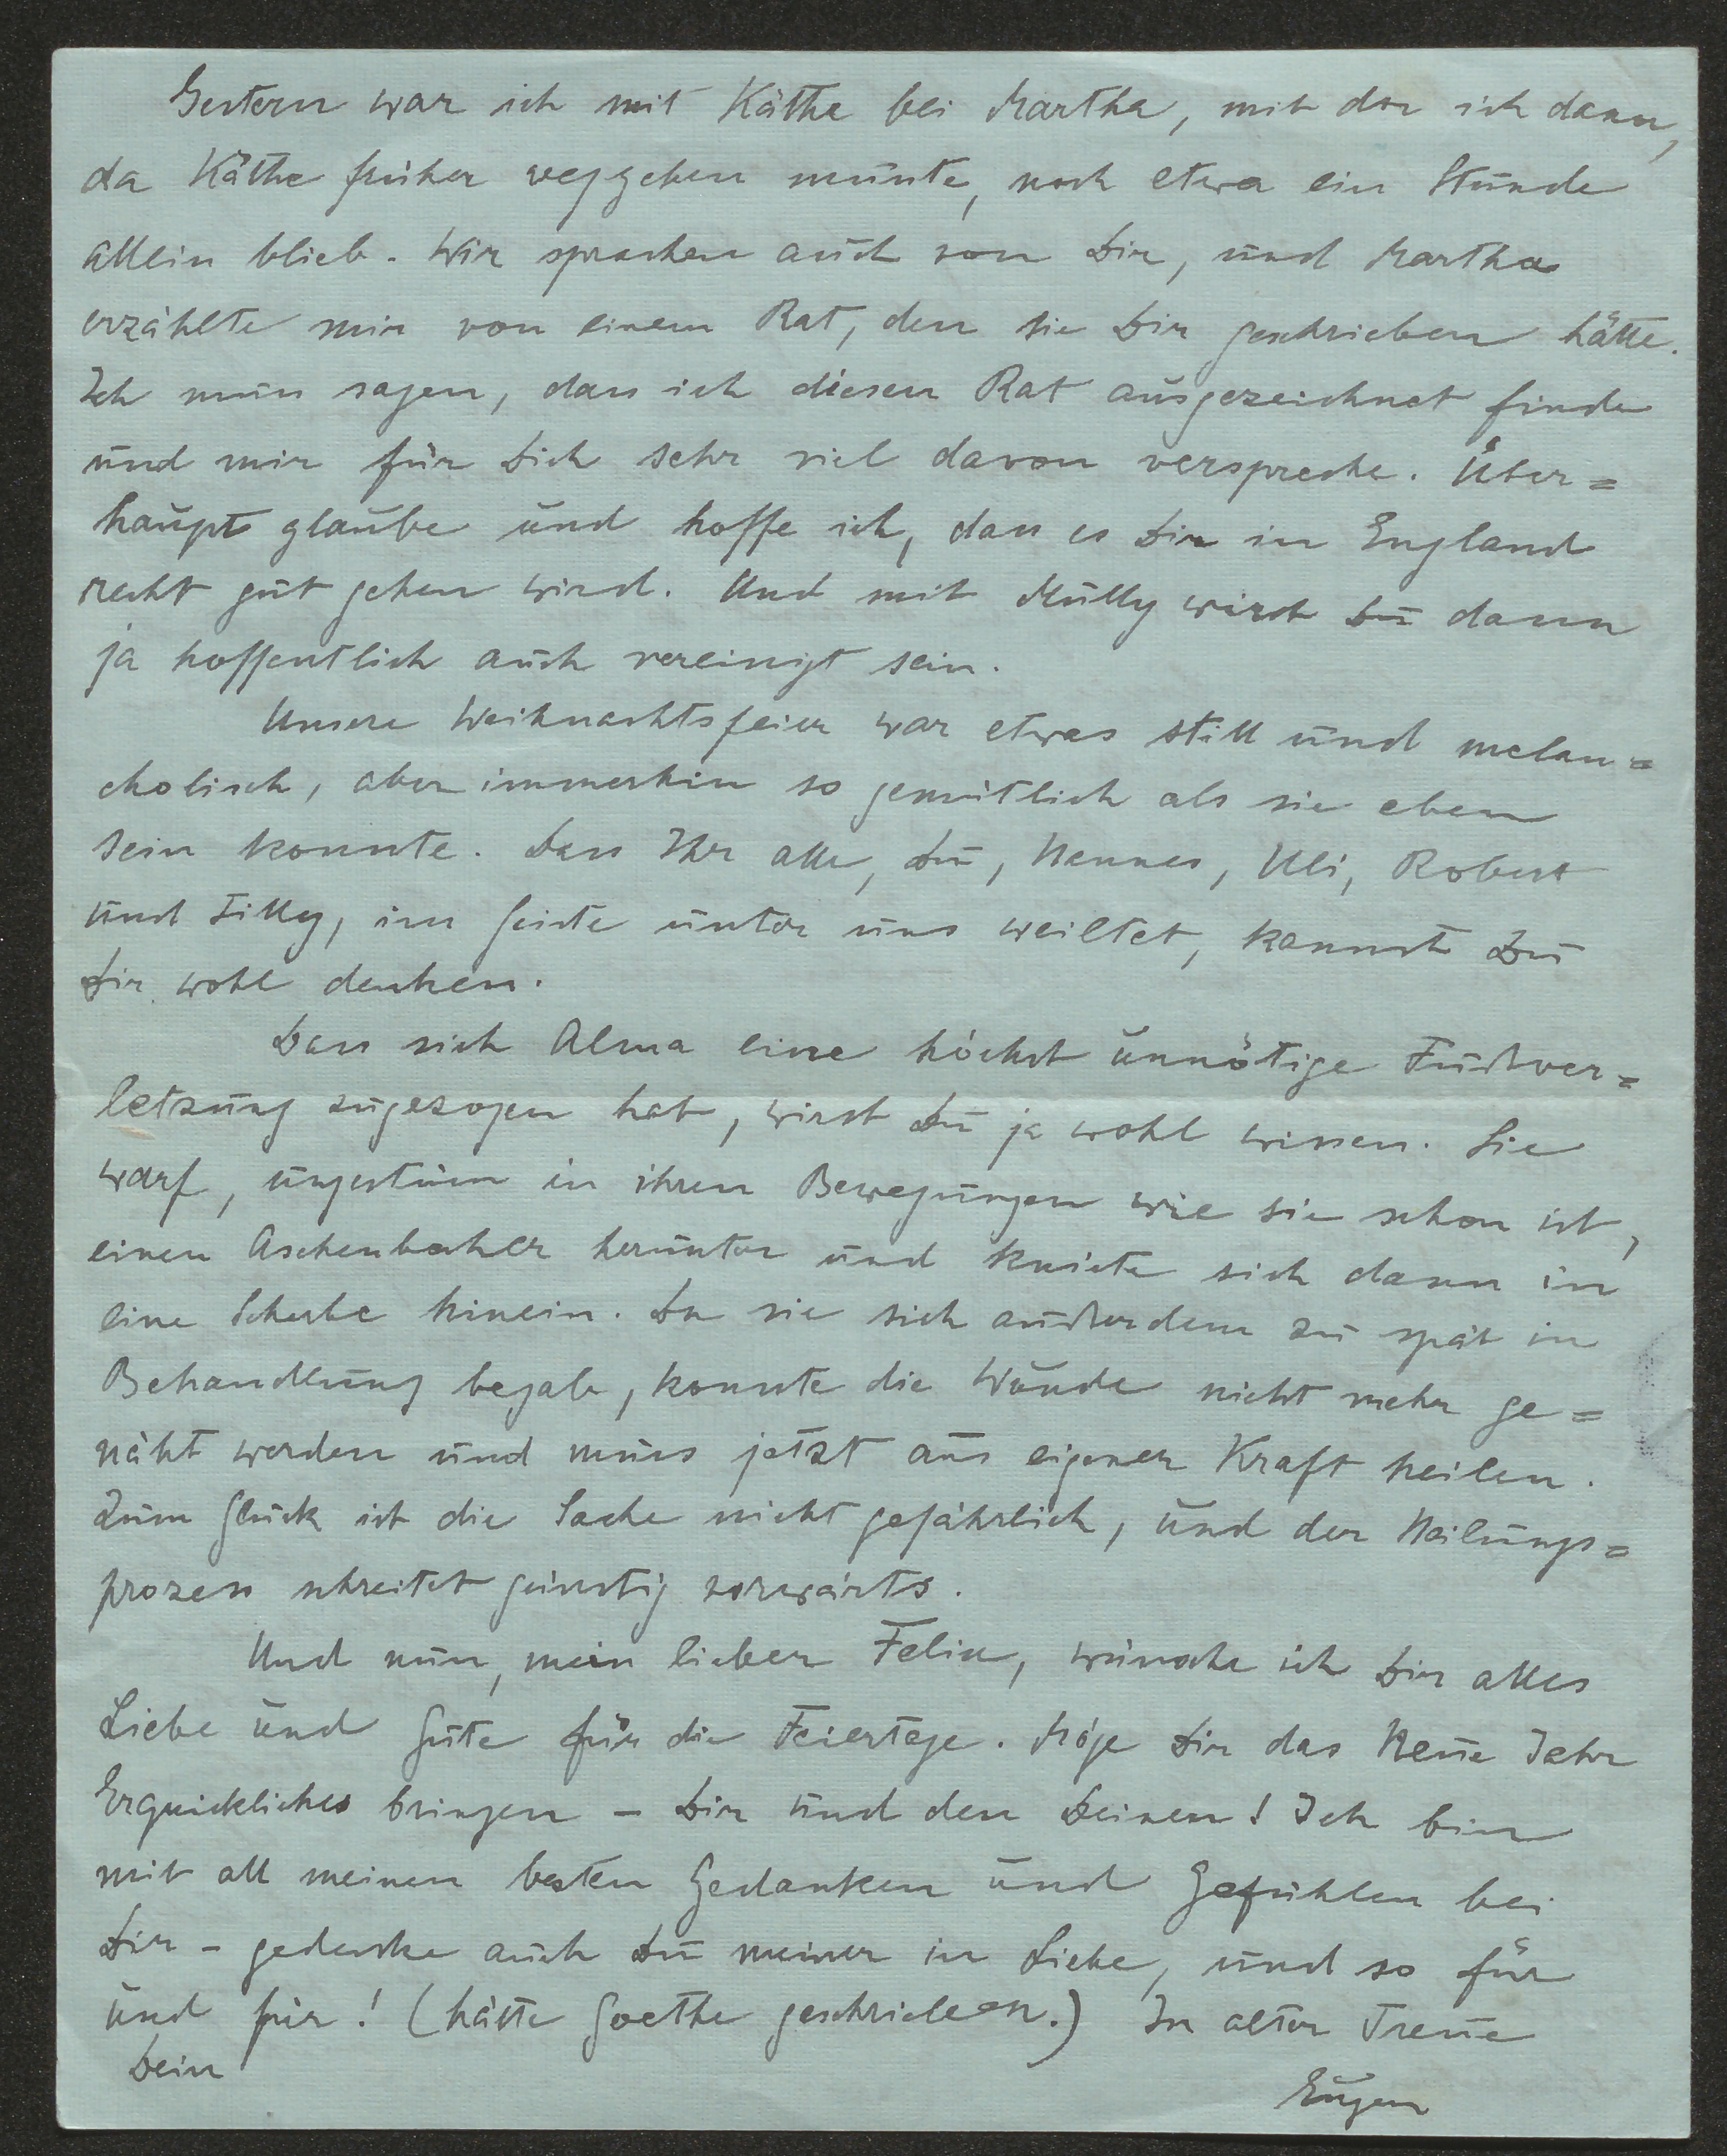 Gestern war ich mit Käthe bei Martha, mit der ich dann,
da Käthe früher weggehen musste, noch etwa ein Stunde
allein blieb. Wir sprachen auch von Dir, und Martha
erzählte mir von einem Rat, den sie Dir geschrieben hätte.
Ich muss sagen, dass ich diesen Rat ausgezeichnet finde
und mir für Dich sehr viel davon verspreche. Über=
haupt glaube und hoffe ich, dass es Dir in England
recht gut gehen wird. Und mit Mully wirst Du dann
ja hoffentlich auch vereinigt sein.
Unsere Weihnachtsfeier war etwas still und melan=
cholisch, aber immerhin so gemütlich als sie eben
sein konnte. Dass Ihr alle, Du, Hannes, Uli, Robert
und Tilly, im Geiste unter uns weiltet, kannst Du
Dir wohl denken.
Dass sich Alma eine höchst unnötige Fußver=
letzung zugezogen hat, wirst Du ja wohl wissen. Sie
warf, ungestüm in ihren Bewegungen wie sie schon ist,
einen Aschenbecher herunter und kniete sich dann in
eine Scherbe hinein. Da sie sich außerdem zu spät in
Behandlung begab, konnte die Wunde nicht mehr ge=
näht werden und muss jetzt aus eigener Kraft heilen.
Zum Glück ist die Sache nicht gefährlich, und der Heilungs=
prozess schreitet günstig vorwärts.
Und nun, mein lieber Felix, wünsche ich Dir alles
Liebe und Gute für die Feiertage. Möge Dir das Neue Jahr
Erquickliches bringen – Dir und den Deinen! Ich bin
mit all meinen besten Gedanken und Gefühlen bei
Dir – gedenke auch Du meiner in Liebe, und so für
und für! (hätte Goethe geschrieben.) In alter Treue
Dein
Eugen